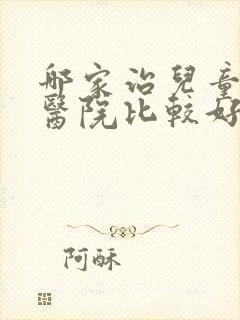 哪家治兒童
醫院比較好
阿酥